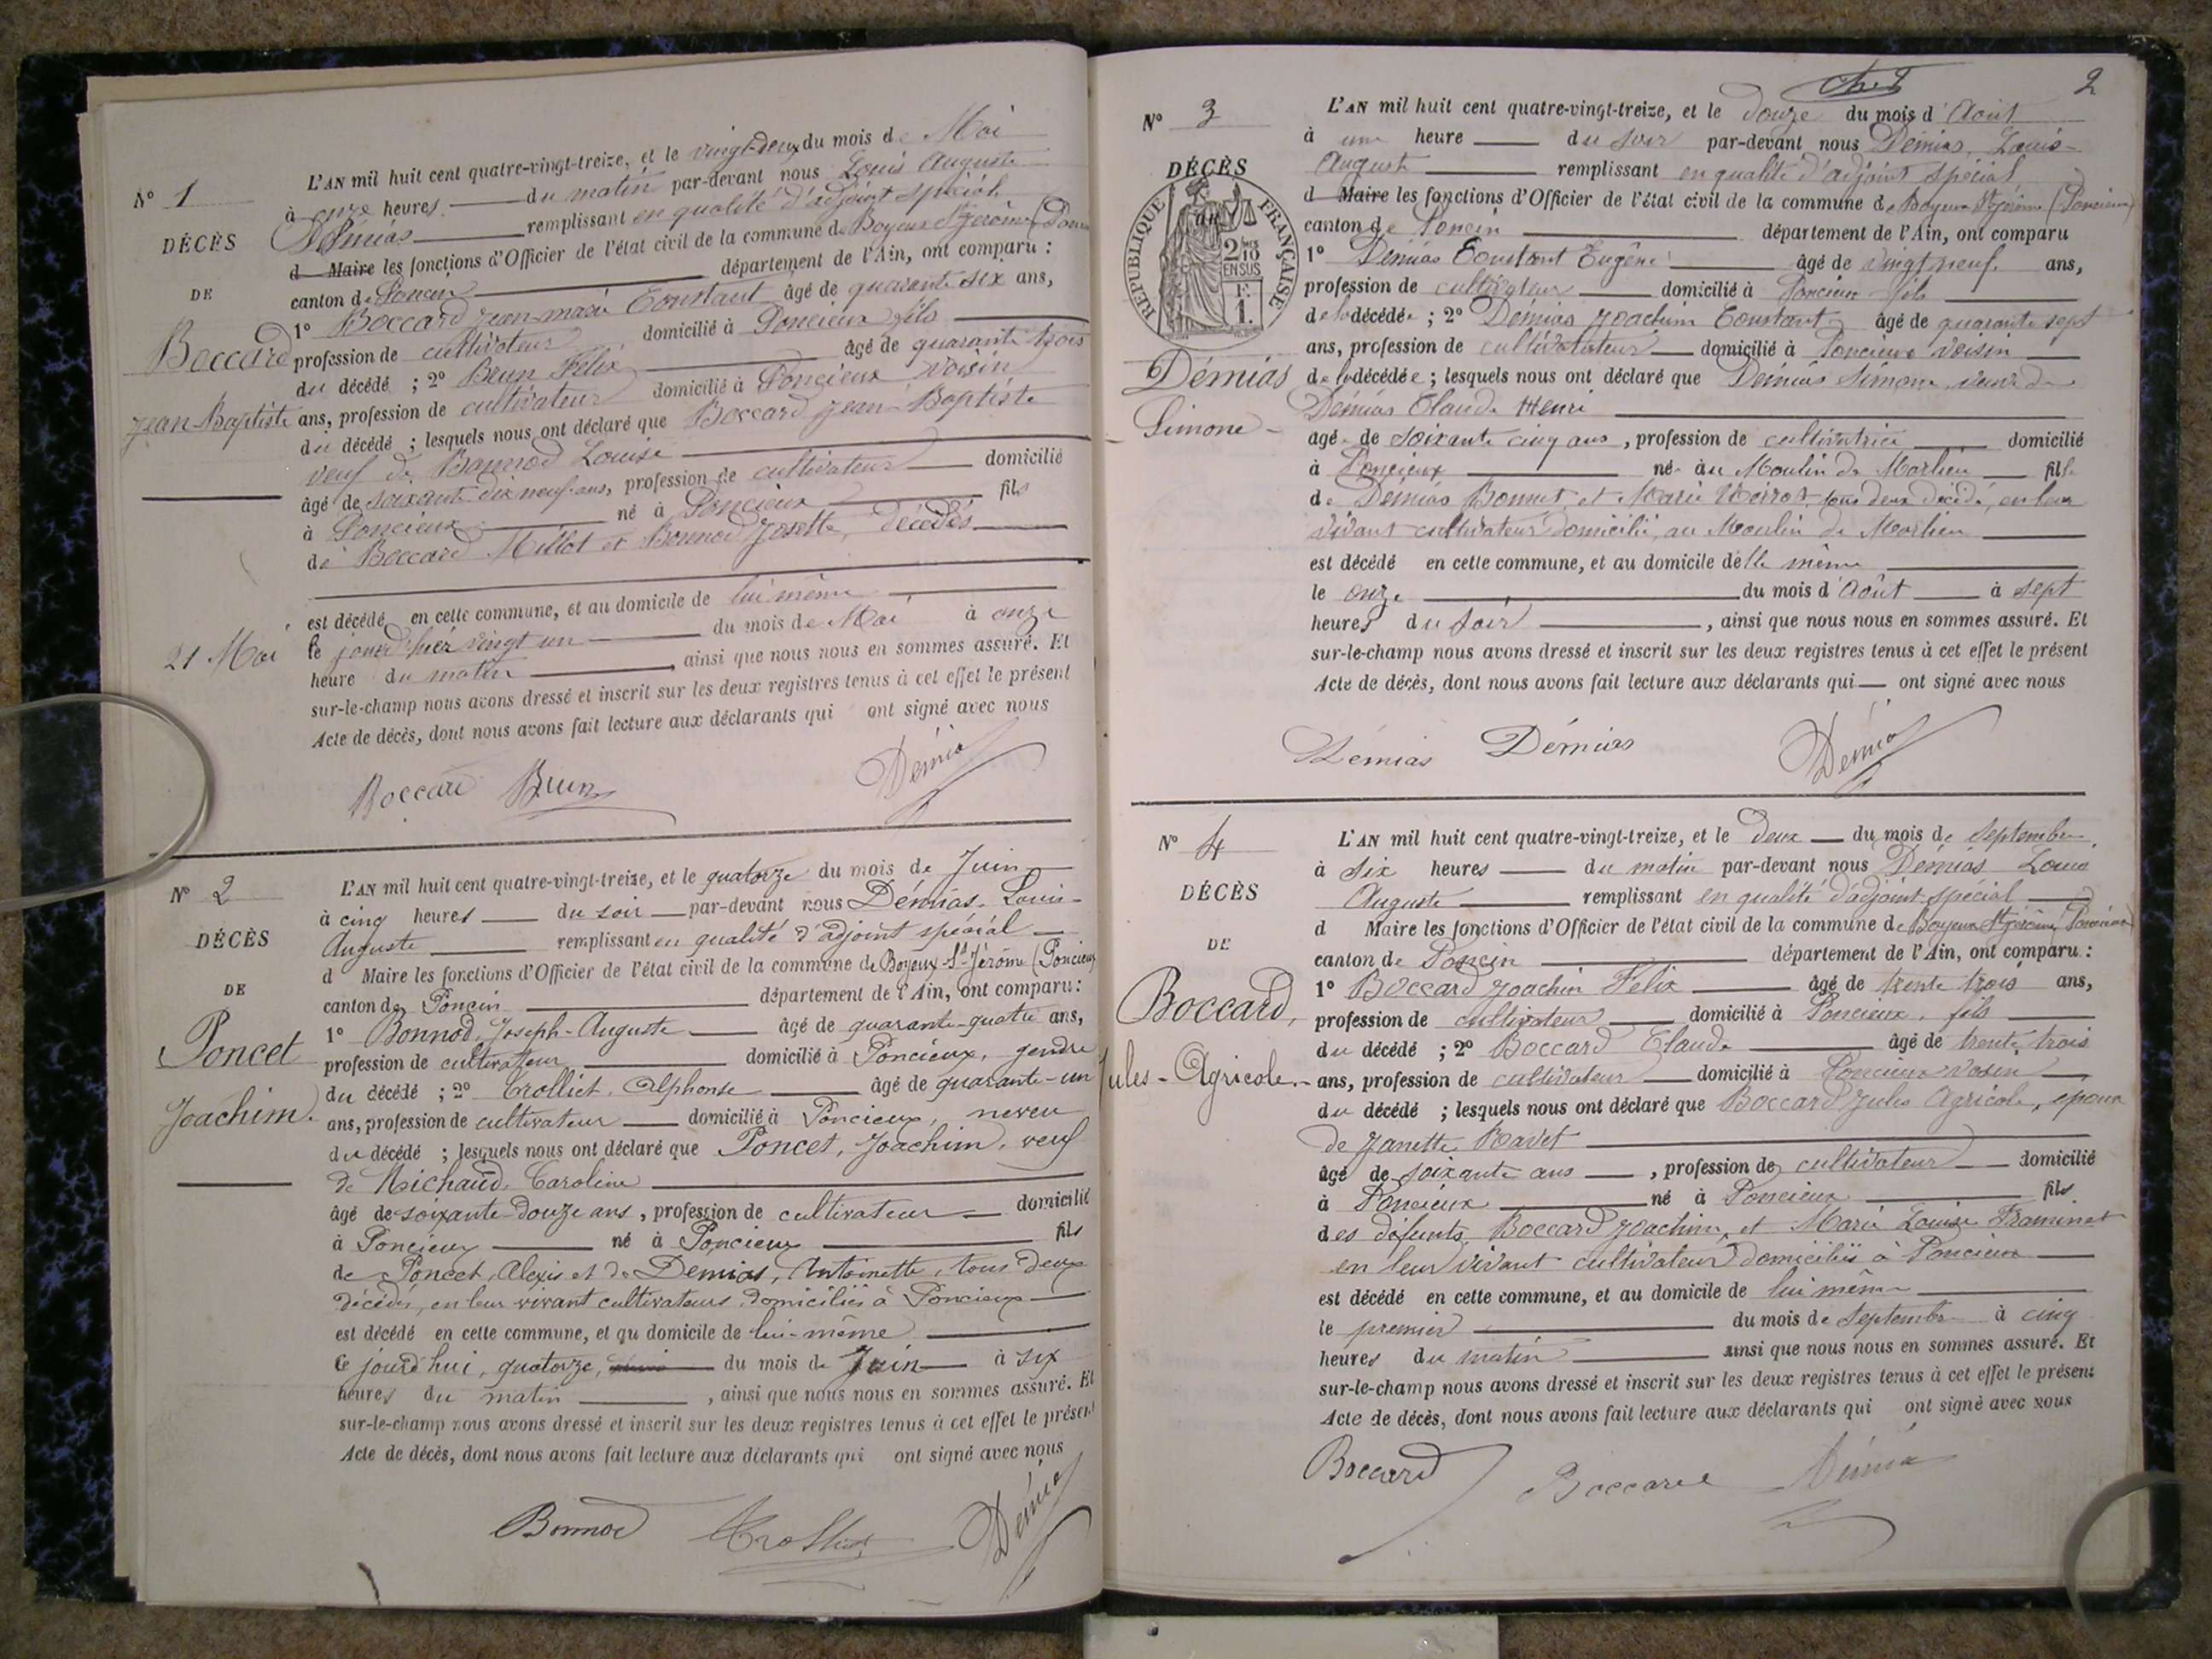 N° 1
DÉCÈS
DE
Boccard
Jean-Baptiste
21 Mai
L'AN mil huit cent quatre-vingt-treize, et le vingt-deux du mois de Mai
à onze heures du matin par-devant nous Louis Auguste
Démias remplissant en qualité d'adjoint spécial
d Maire les fonctions d'Officier de l'état civil de la commune de Boyeux St Jérôme
canton de Poncin département de l'Ain, ont comparu :
1° Boccard Jean-marie Constant âgé de quarante six ans,
profession de cultivateur domicilié à Poncieux fils
du décédé ; 2° Brun Félix âgé de quarante trois
ans, profession de cultivateur domicilié à Poncieux voisin
du décédé ; lesquels nous ont déclaré que Boccard Jean-Baptiste
veuf de Bonnod Louise
âgé de soixante dix neuf ans, profession de cultivateur domicilié
à Poncieux né à Poncieux fils
de Boccard Millot et Bonnod Josette, décédés
est décédé en cette commune, et au domicile de lui même
le jour d'hier vingt un du mois de Mai à onze
heure du matin, ainsi que nous nous en sommes assuré. Et
sur-le-champ nous avons dressé et inscrit sur les deux registres tenus à cet effet le présent
Acte de décès, dont nous avons fait lecture aux déclarants qui ont signé avec nous
Boccard Brun Démias
N° 2
DÉCÈS
DE
Poncet
Joachim.
L'AN mil huit cent quatre-vingt-treize, et le quatorze du mois de Juin
à cinq heures du soir par-devant nous Démias, Louis-
Auguste remplissant en qualité d'adjoint spécial
d Maire les fonctions d'Officier de l'état civil de la commune de Boyeux-St-Jérôme (Poncieux
canton de Poncin département de l'Ain, ont comparu :
1° Bonnod, Joseph-Auguste âgé de quarante-quatre ans,
profession de cultivateur domicilié à Poncieux, gendre
du décédé ; 2° Crolliet, Alphonse âgé de quarante-un
ans, profession de cultivateur domicilié à Poncieux, neveu
du décédé ; lesquels nous ont déclaré que Poncet, Joachim, veuf
de Michaud, Caroline
âgé de soixante-douze ans, profession de cultivateur domicilié
à Poncieux né à Poncieux fils
de Poncet, Alexis et de Demias, Antoinette, tous deux
décédés, en leur vivant cultivateurs domiciliés à Poncieux
est décédé en cette commune, et au domicile de lui-même
le jourd'hui, quatorze, du mois de Juin à six
heures du matin, ainsi que nous nous en sommes assuré. Et
sur-le-champ nous avons dressé et inscrit sur les deux registres tenus à cet effet le présent
Acte de décès, dont nous avons fait lecture aux déclarants qui ont signé avec nous
Bonnod Crolliet Démias
2
N° 3
DÉCÈS
de
RÉPUBLIQUE FRANÇAISE
2/10 EN SUS
F. 1.
Démias
Simone
L'AN mil huit cent quatre-vingt-treize, et le douze du mois d'Août
à une heure du soir par-devant nous Démias, Louis-
August remplissant en qualité d'adjoint spécial
d Maire les fonctions d'Officier de l'état civil de la commune de Boyeux St Jérôme (Poncieux)
canton de Poncin département de l'Ain, ont comparu
1° Démias Constant Eugène âgé de vingt neuf ans,
profession de cultivateur domicilié à Poncieux fils
de la décédée ; 2° Démias Joachim Constant âgé de quarante sept
ans, profession de cultivatateur domicilié à Poncieux voisin
de la décédée ; lesquels nous ont déclaré que Démias Simone veuve de
Démias Claude Henri
âgé de soixante cinq ans, profession de cultivatrice domicilié
à Poncieux né au Moulin de Marlieu fille
de Démias Bonnet et Marie tous deux décédé, en leur
vivant cultivateur domicilié, au Moulin de Marlieu
est décédé en cette commune, et au domicile d'elle même
le onze du mois d'Août à sept
heures du soir, ainsi que nous nous en sommes assuré. Et
sur-le-champ nous avons dressé et inscrit sur les deux registres tenus à cet effet le présent
Acte de décès, dont nous avons fait lecture aux déclarants qui ont signé avec nous
Démias Démias Démias
N° 4
DÉCÈS
DE
Boccard,
Jules-Agricole.
L'AN mil huit cent quatre-vingt-treize, et le deux du mois de Septembre
à six heures du matin par-devant nous Démias Louis
Auguste remplissant en qualité d'adjoint spécial
d Maire les fonctions d'Officier de l'état civil de la commune de Boyeux St Jérôme (Poncieux)
canton de Poncin département de l'Ain, ont comparu :
1° Boccard Joachim Felix âgé de trente trois ans,
profession de cultivateur domicilié à Poncieux, fils
du décédé ; 2° Boccard Claude âgé de trente trois
ans, profession de cultivateur domicilié à Poncieux voisin
du décédé ; lesquels nous ont déclaré que Boccard Jules Agricole, époux
de Janette Ravet
âgé de soixante ans, profession de cultivateur domicilié
à Poncieux né à Poncieux fils
des défunts Boccard Joachim, et Marie Louise Framinet
en leur vivant cultivateur domiciliés à Poncieux
est décédé en cette commune, et au domicile de lui même
le premier du mois de Septembre à cinq
heures du matin ainsi que nous nous en sommes assuré. Et
sur-le-champ nous avons dressé et inscrit sur les deux registres tenus à cet effet le présent
Acte de décès, dont nous avons fait lecture aux déclarants qui ont signé avec nous
Boccard Boccard Démias